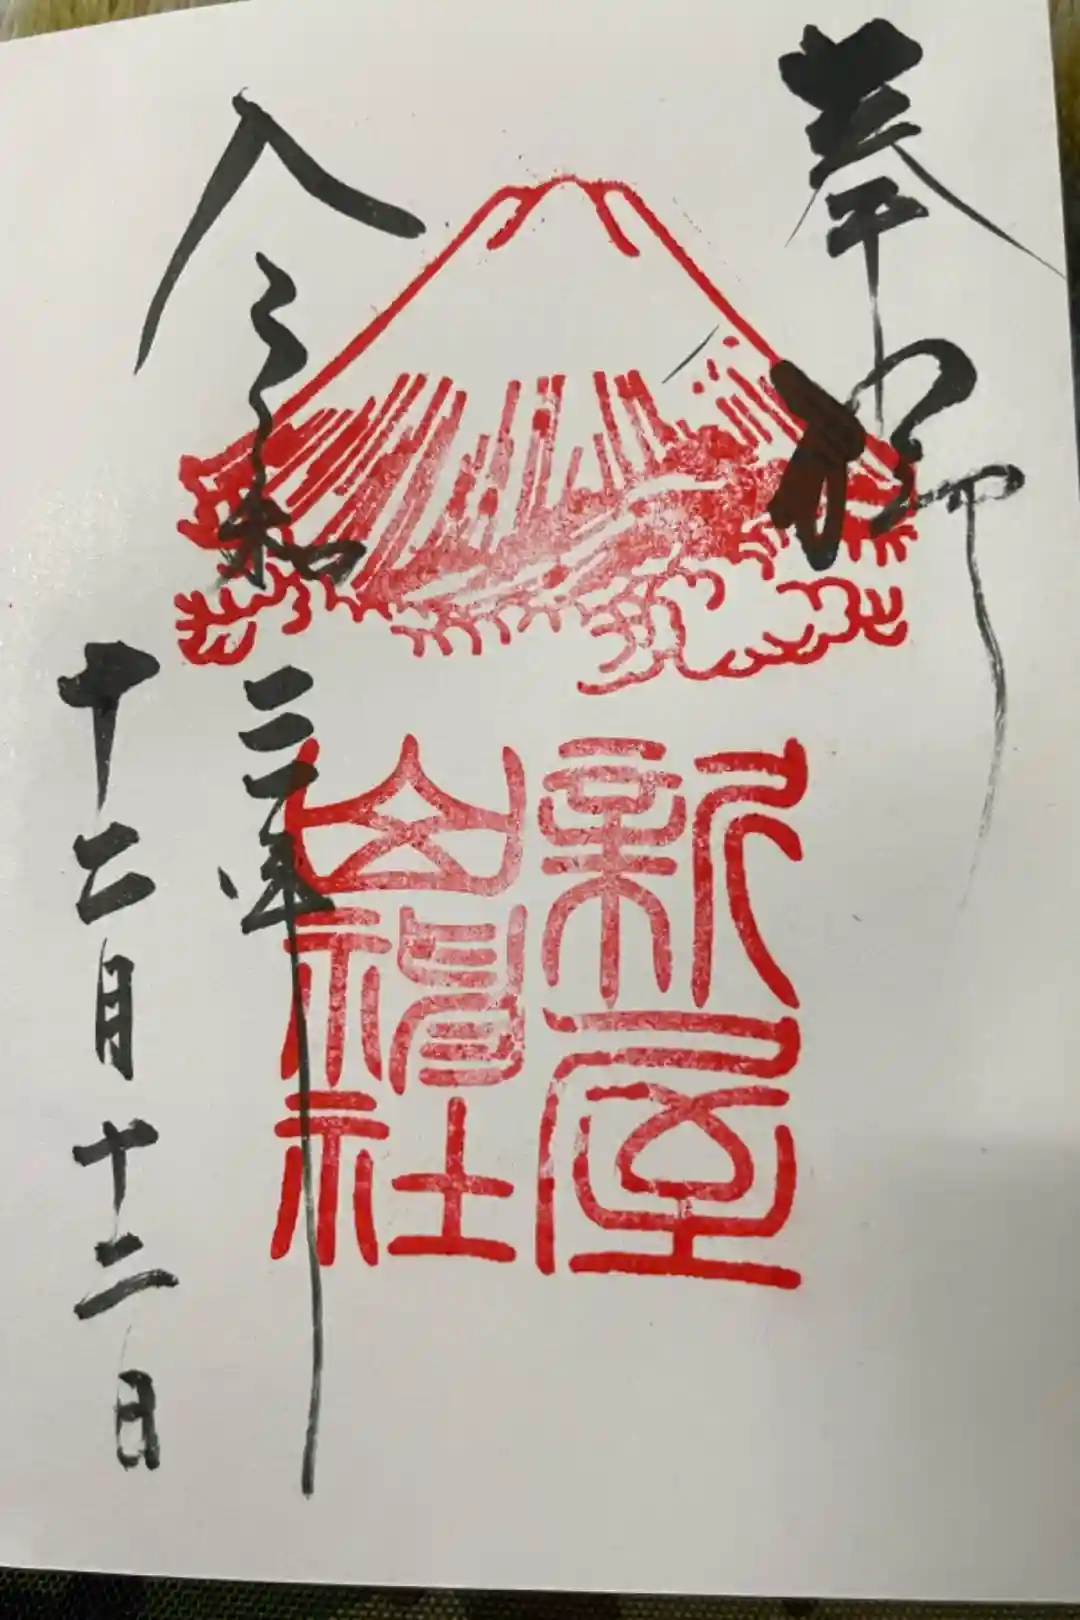 奉拝
新屋
山神社
令和三年
十二月十二日